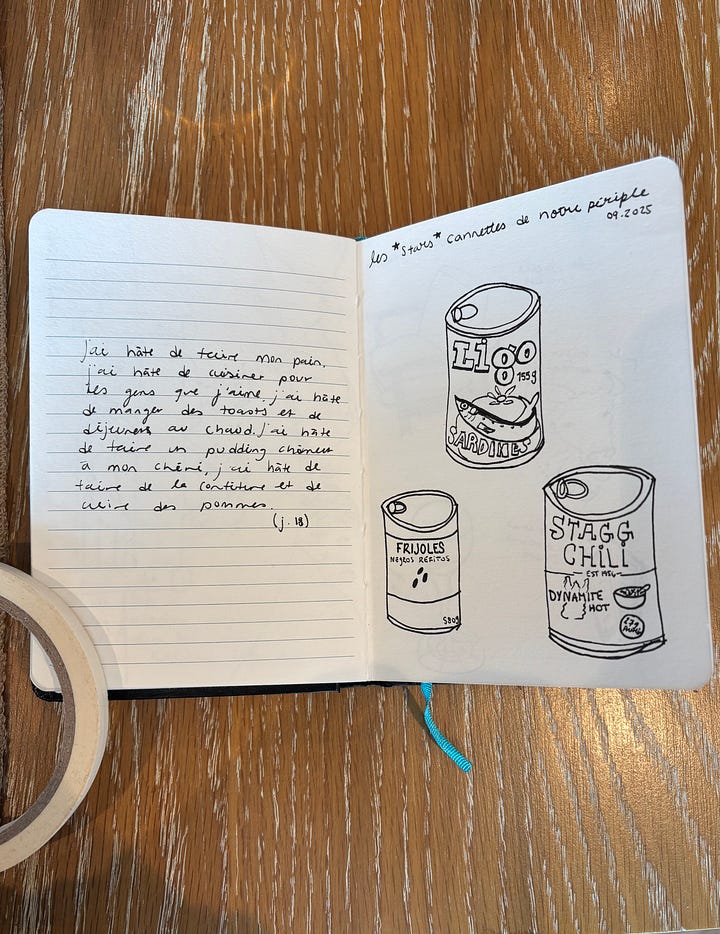 j'ai hâte de faire mon pain,
j'ai hâte de cuisiner pour
les gens que j'aime. j'ai hâte
de manger des toasts et de
déjeuners au chaud. j'ai hâte
de faire un pudding chômeur
à mon chéri, j'ai hâte de
faire de la confiture et de
cuire des pommes.
(j. 18)
les *stars* cannettes de notre périple
09.2025
Ligo
155g
SARDINES
FRIJOLES
NEGROS REFITOS
580g
STAGG
CHILI
EST 1956
DYNAMITE
HOT
17g